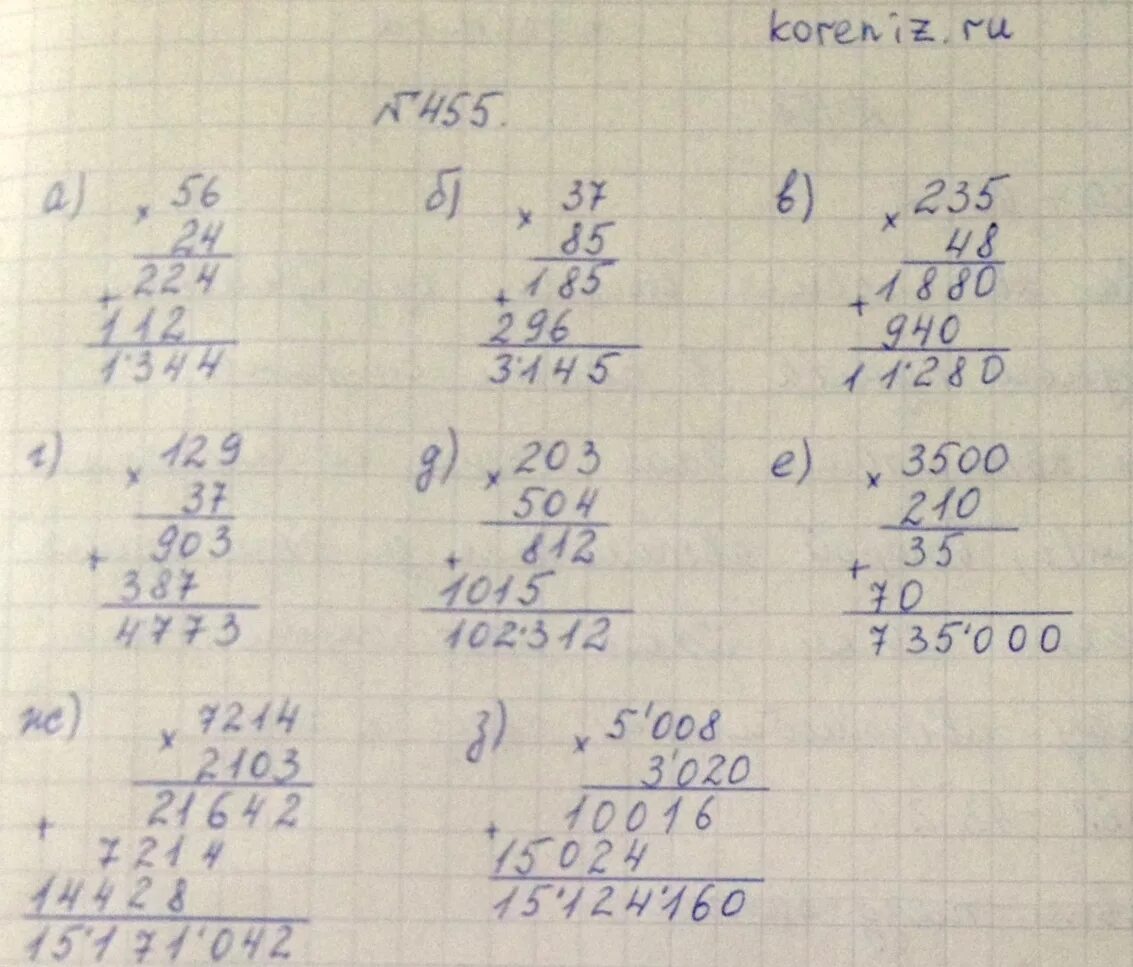 koreniz.ru
№455.
а) × 56
24
224
+
112
1'344
б) × 37
85
185
+
296
3'145
в) × 235
48
1880
+
940
11'280
г) × 129
37
903
+
387
4773
д) × 203
504
812
+
1015
102'312
е) × 3500
210
35
+
70
735'000
ж) × 7214
2103
21642
+
7214
14428
15'171'042
з) × 5'008
3'020
10016
+
15024
15'124'160